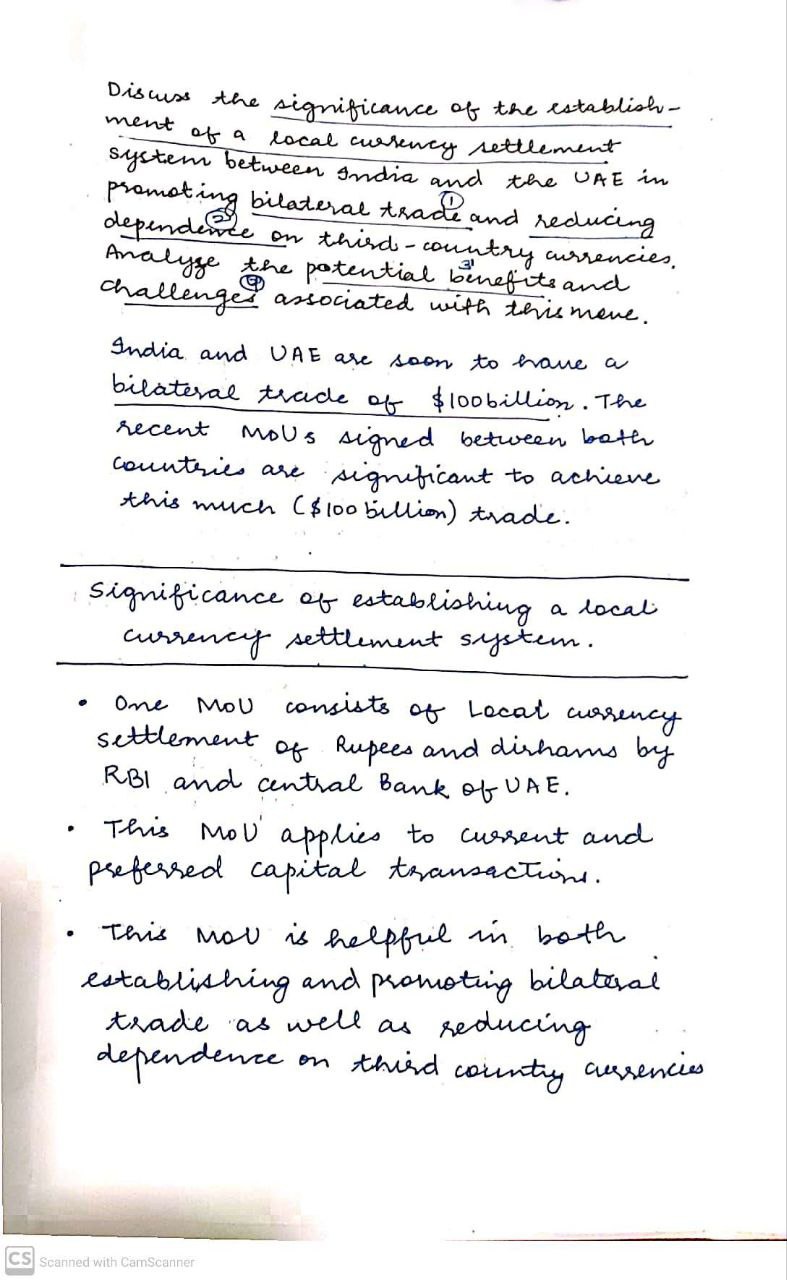 Discuss the significance of the establish-
ment of a local currency settlement
system between India and the UAE in
promoting bilateral trade ① and reducing
dependence ② on third-country currencies.
Analyze the potential benefits ③ and
challenges ④ associated with this move.
India and UAE are soon to have a
bilateral trade of $100billion. The
recent MoUs signed between both
countries are significant to achieve
this much ($100 billion) trade.
Significance of establishing a local
currency settlement system.
• One MoU consists of Local currency
settlement of Rupees and dirhams by
RBI and central Bank of UAE.
• This MoU applies to current and
preferred capital transactions.
• This MoU is helpful in both
establishing and promoting bilateral
trade as well as reducing
dependence on third country currencies
CS Scanned with CamScanner